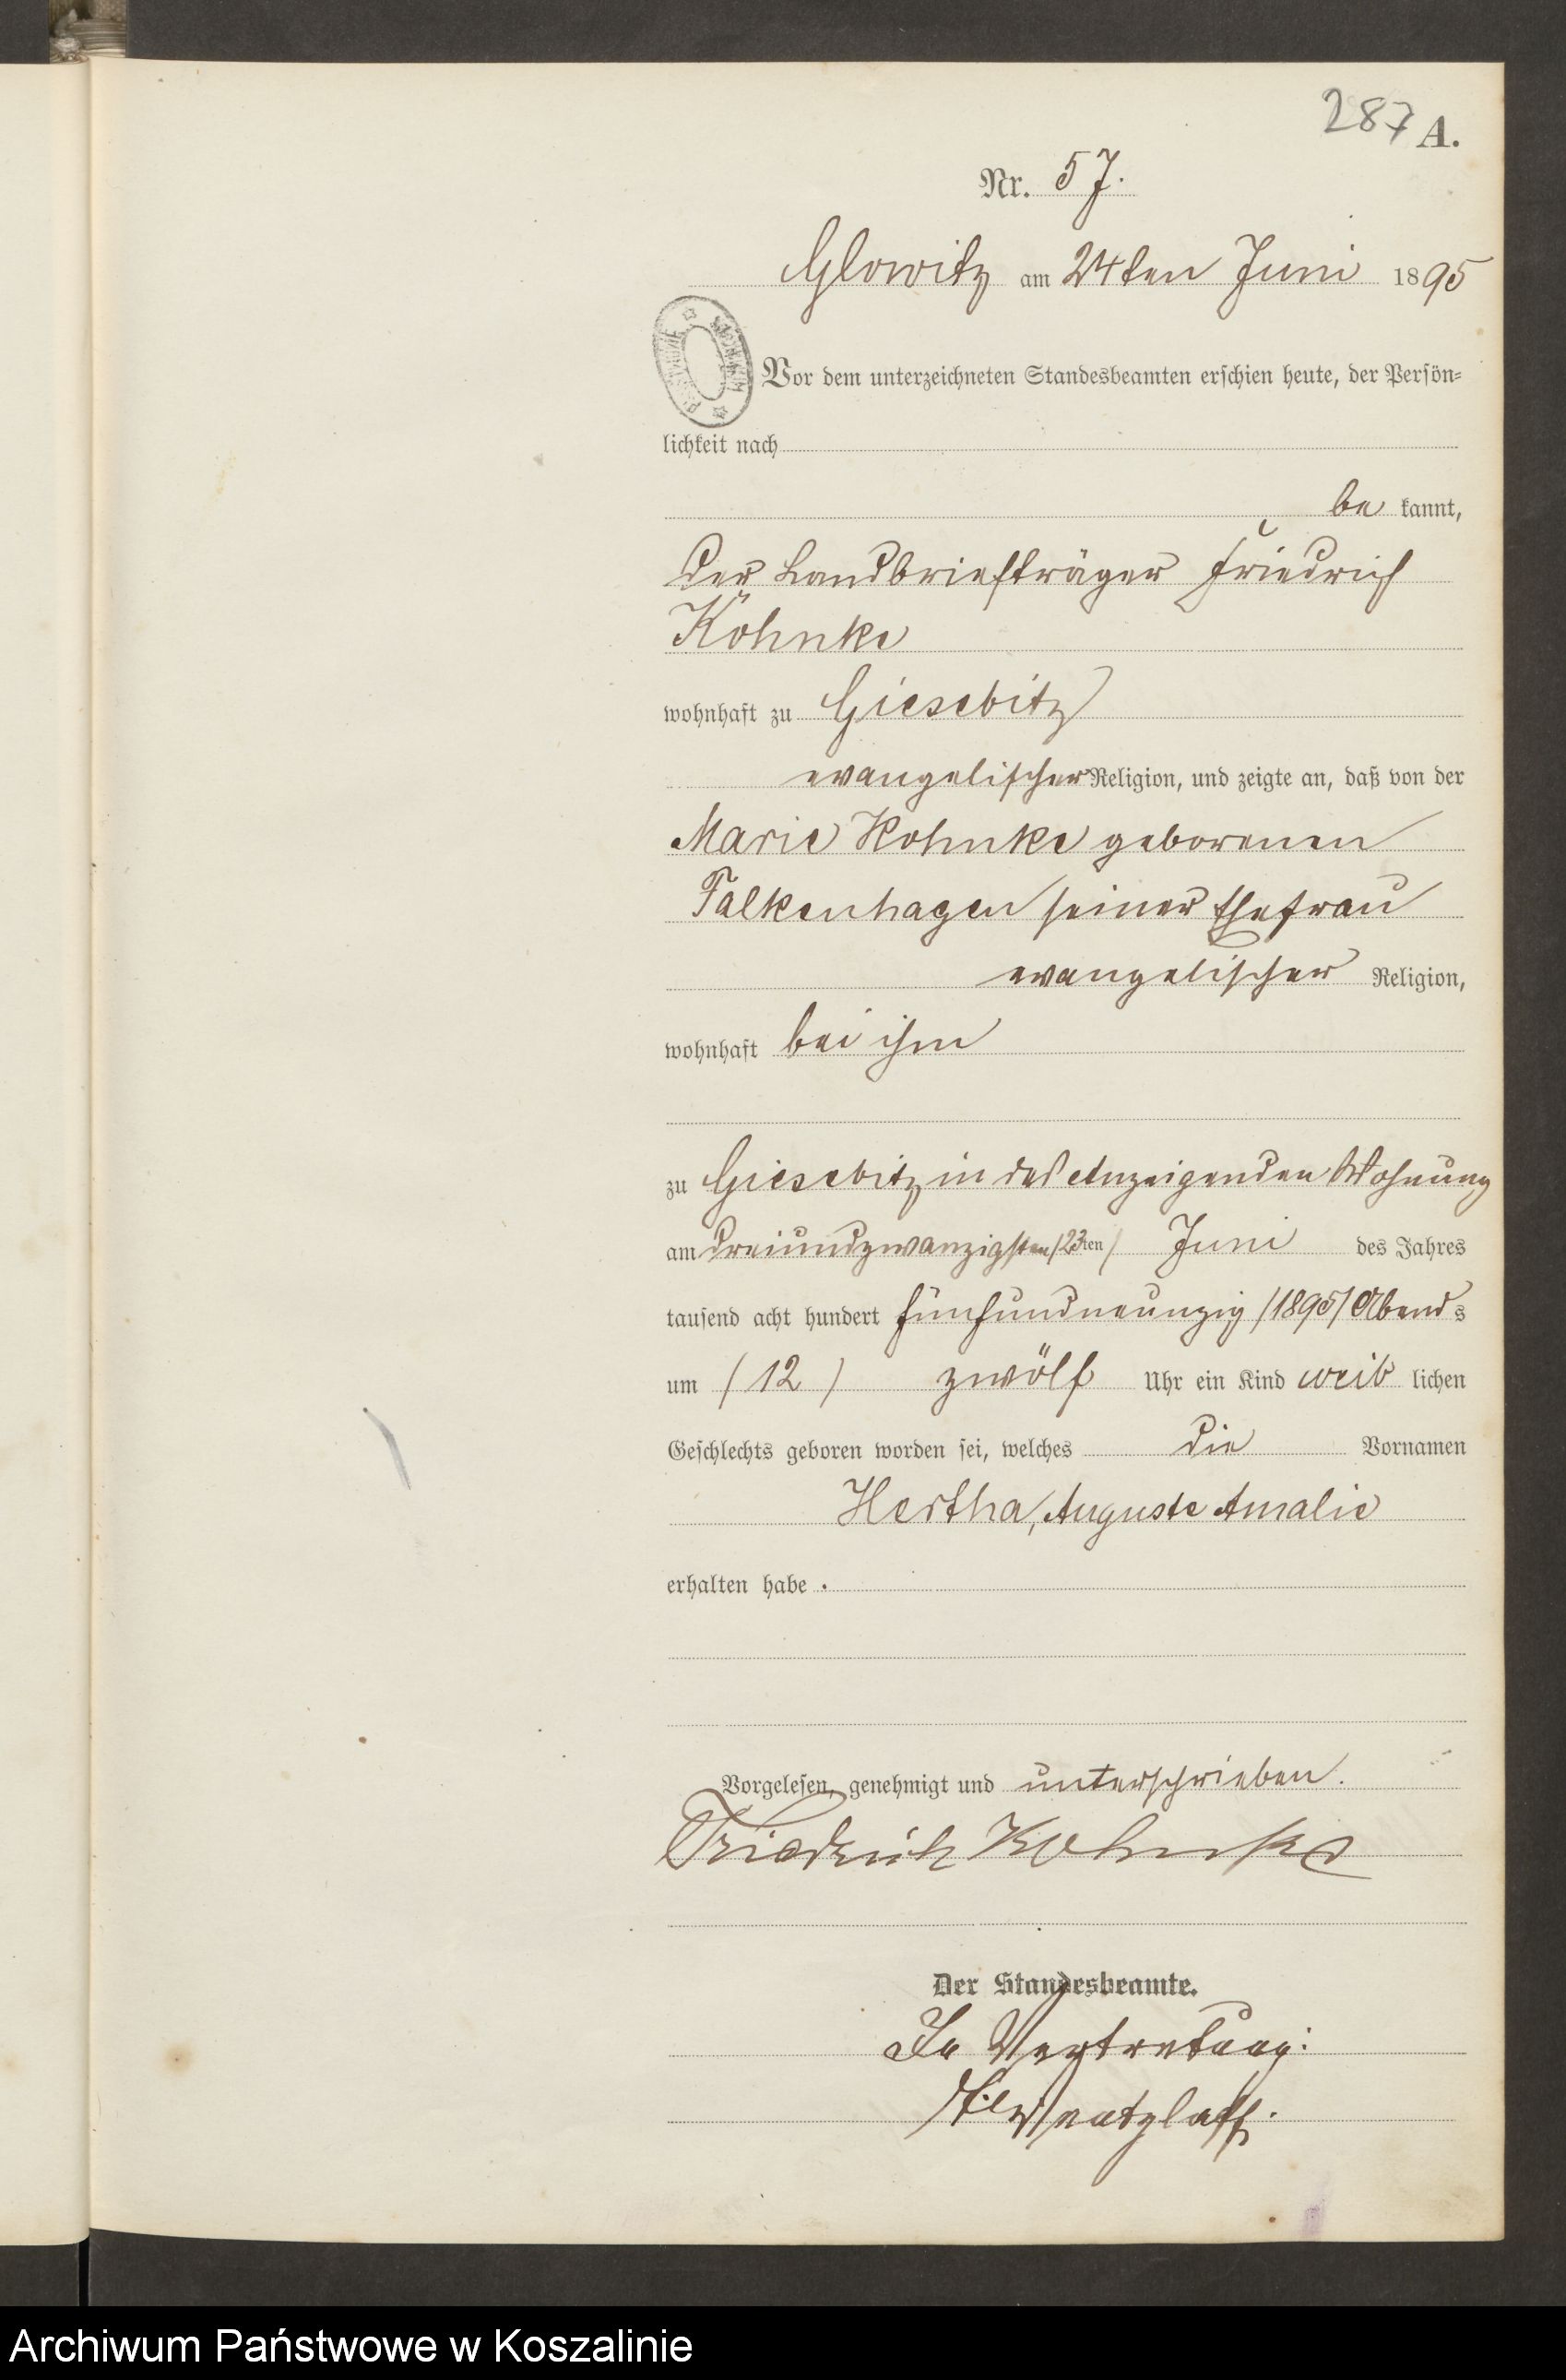 287 A.
Nr. 57.
Glowitz am 24ten Juni 1895
Vor dem unterzeichneten Standesbeamten erschien heute, der Persön-
lichkeit nach
be kannt,
der Landbriefträger Friedrich
Köhnke
wohnhaft zu Giesebitz
evangelischer Religion, und zeigte an, daß von der
Marie Kohnke geborenen
Falkenhagen seiner Ehefrau
evangelischer Religion,
wohnhaft bei ihm
zu Giesebitz in des Anzeigenden Wohnung
am dreiundzwanzigsten /23ten/ Juni des Jahres
tausend acht hundert fünfundneunzig /1895/ Abends
um /12/ zwölf Uhr ein Kind weib lichen
Geschlechts geboren worden sei, welches die Vornamen
Hertha, Auguste Amalie
erhalten habe.
Vorgelesen, genehmigt und unterschrieben.
Friedrich Kohnke
Der Standesbeamte.
In Vertretung:
Archiwum Państwowe w Koszalinie